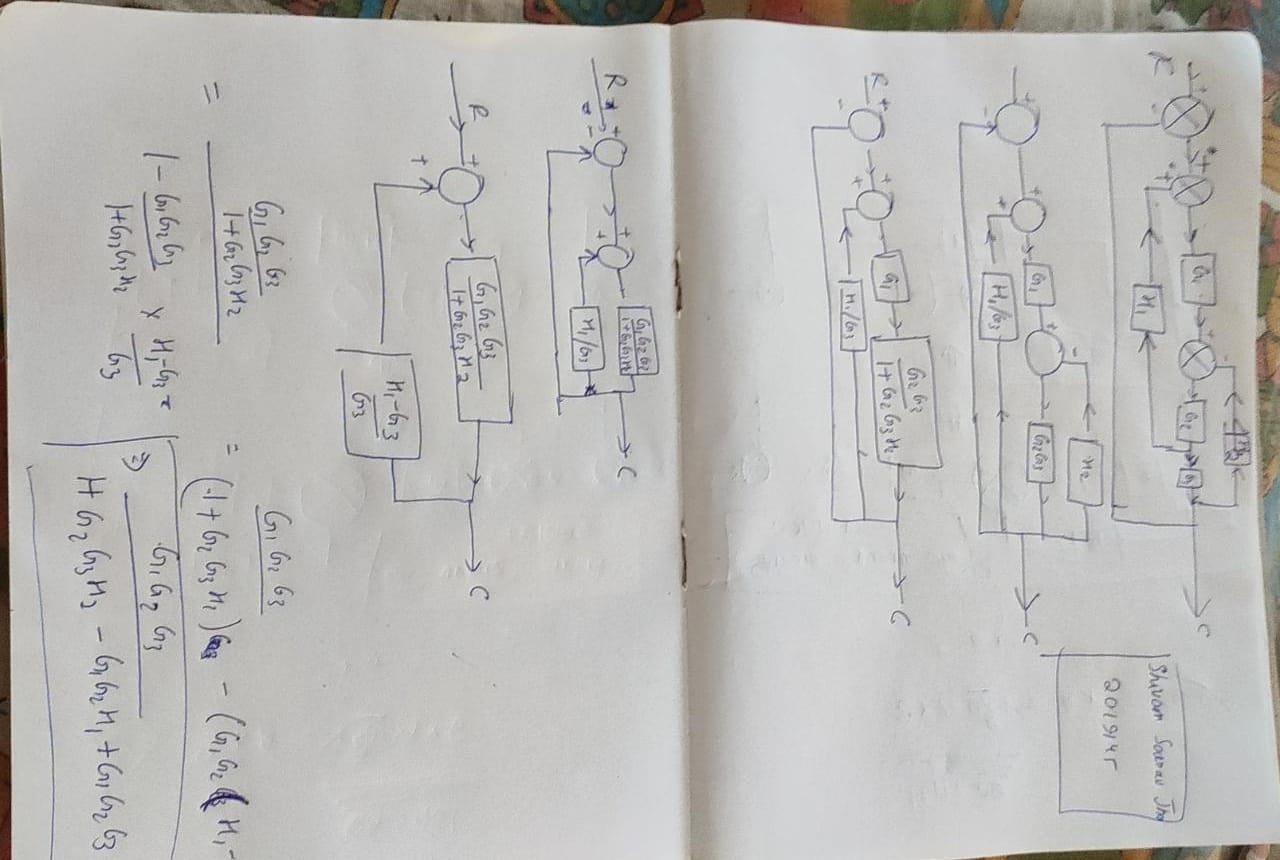 Shivam Sourav Jha
R + + + G1 + G2
-
H1
C
+ + G1 G2G3 C
- + H1/G3 - H2
R + + G1 G2G3 / 1+G2G3H2 C
- + H1/G3
R + + G1G2G3 / 1+G2G3H2 C
- + H1/G3
R + G1G2G3 / 1+G2G3H2 C
+ H1-G3 / G3
G1G2G3
1+G2G3H2
=
1 - G1G2G3 / 1+G2G3H2 × H1-G3 / G3
= G1G2G3
(1+G2G3H2) - (G1G2 H1-
⇒ G1G2G3
1+G2G3H2 - G1G2H1 + G1G2G3